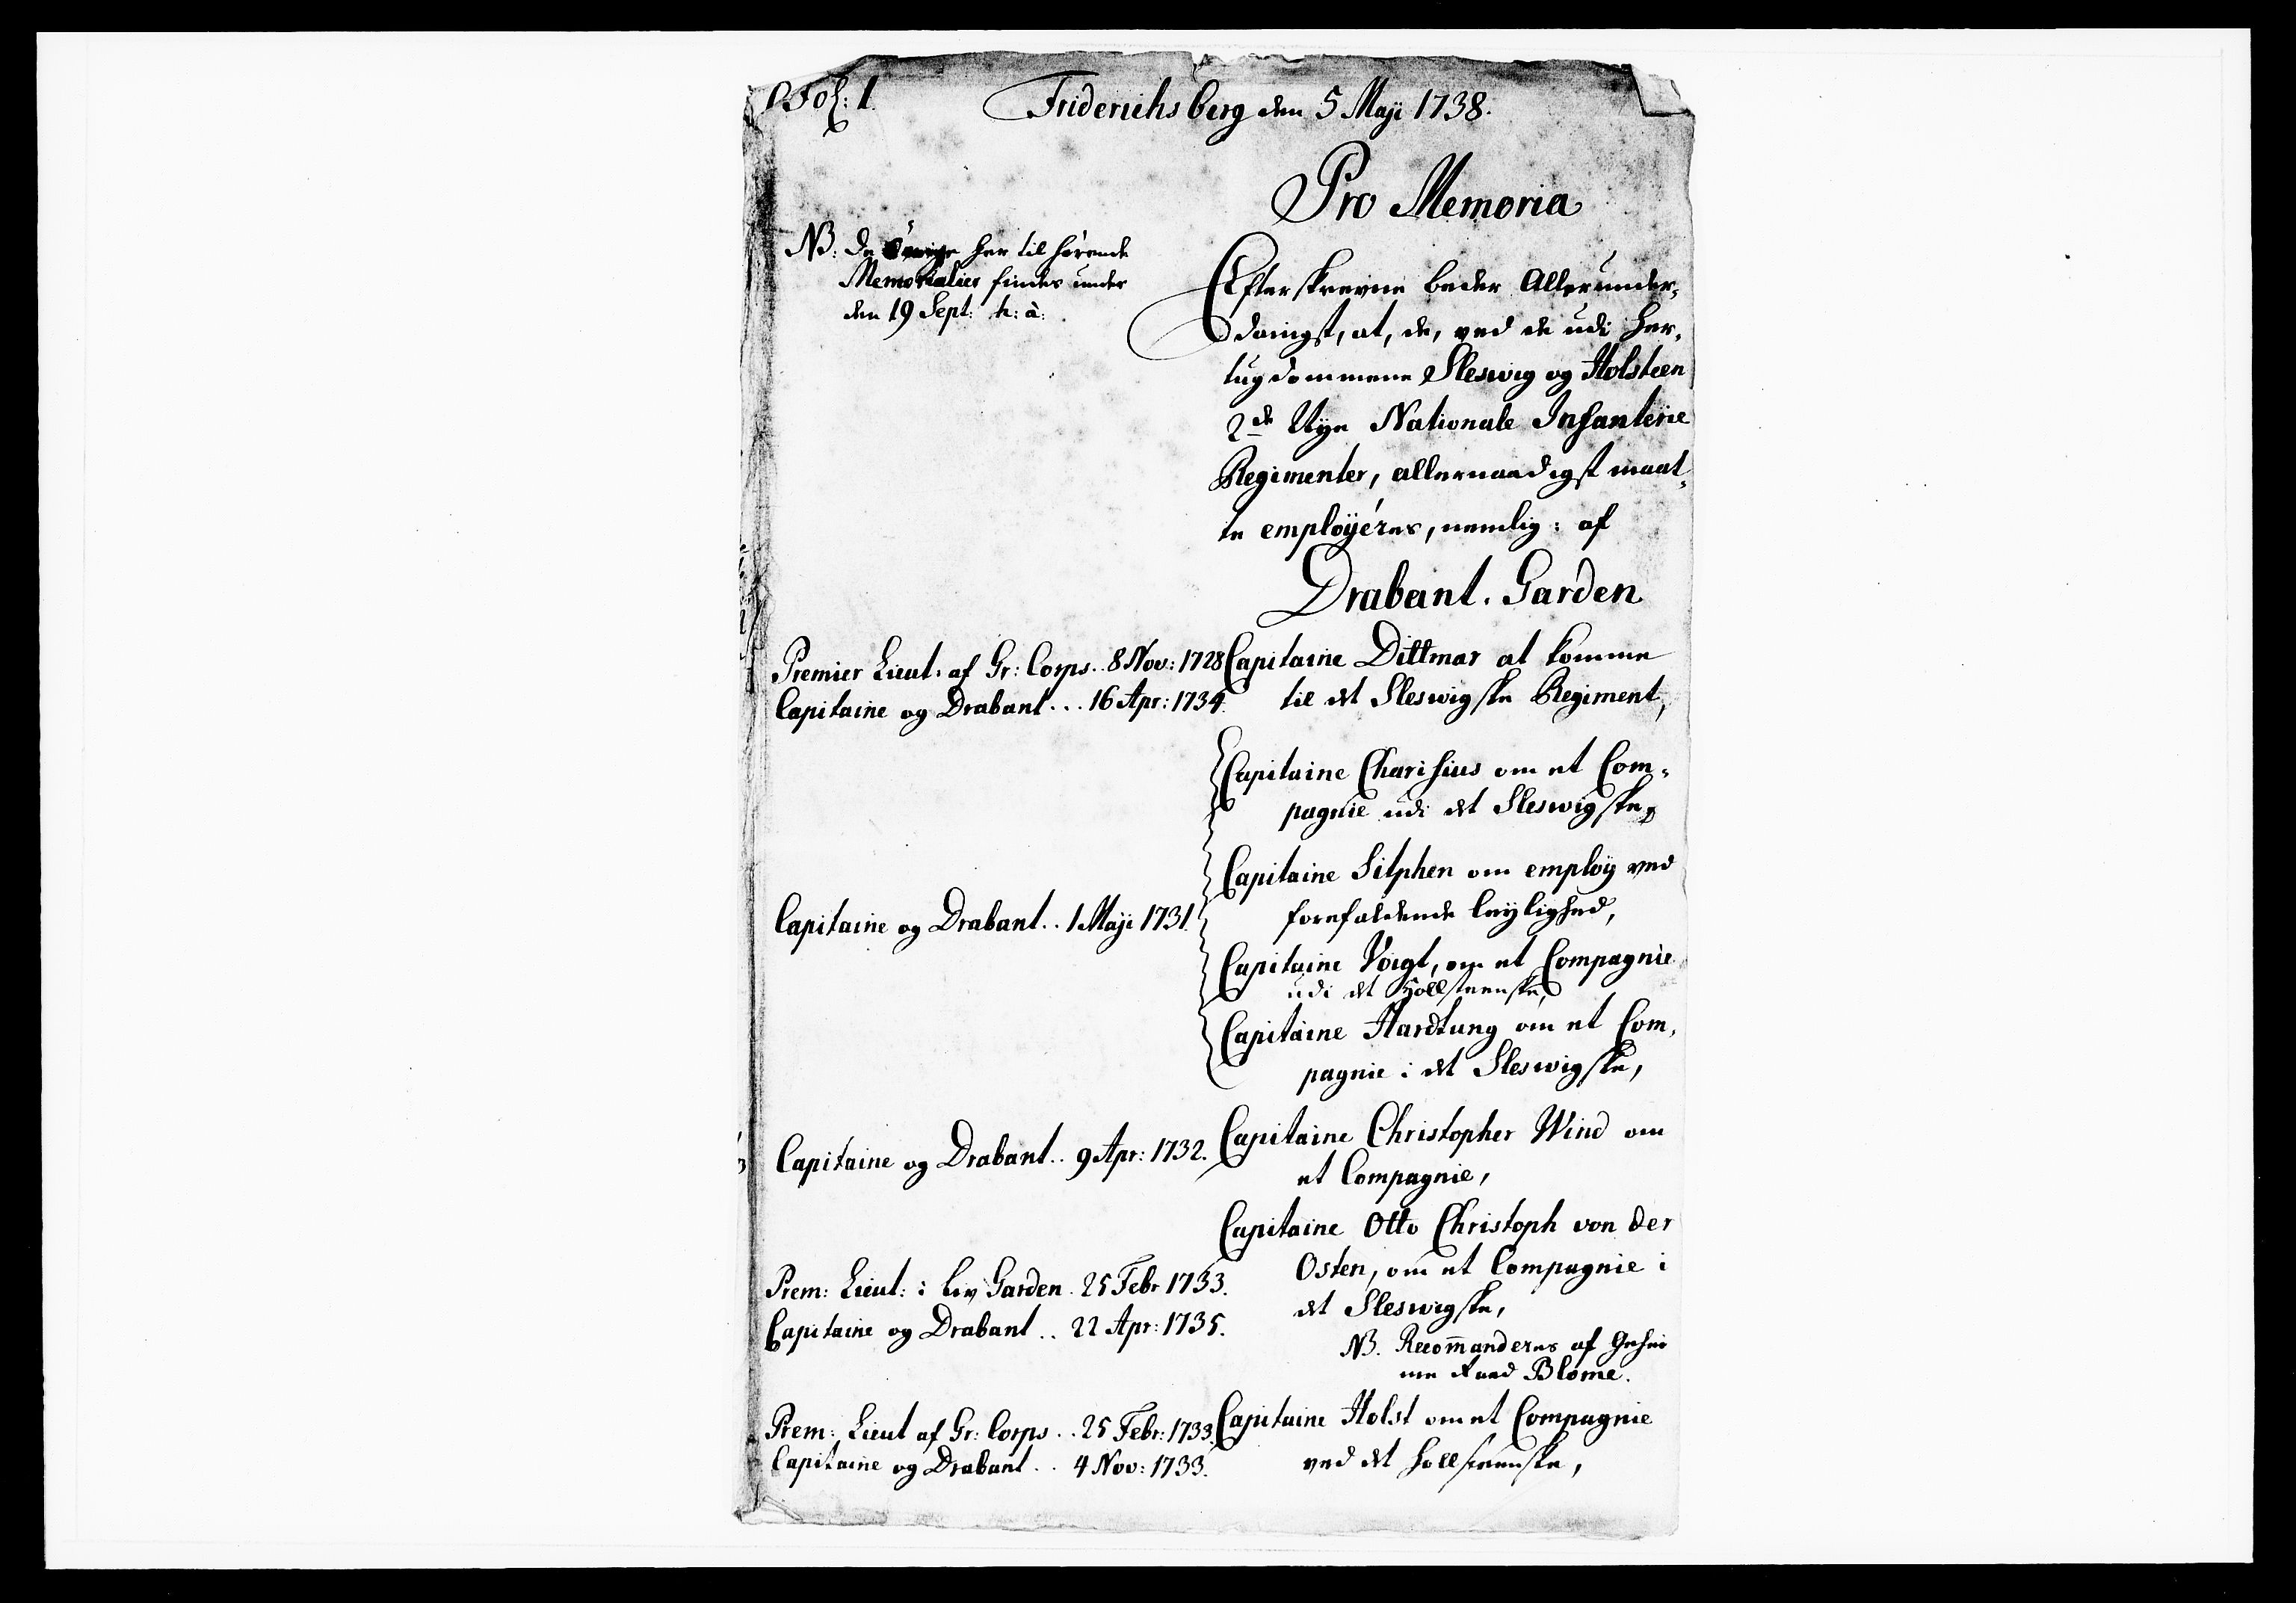 Fol: 1.
Friderichsberg den 5 Maji 1738.
Pro Memoria
NB: De Övrige her til hörende
Memorialier findes under
den 19 Sept: h: à:
Efterskrevne beder Allerunder-
danigst, at, de, ved de udi Her-
tugdommene Sleswig og Holsteen
2de Nye Nationale Infanterie
Regimenter, allernaadigst maat-
te employéres, nemlig: af
Drabant-Garden
Premier Lieut: af Gr: Corps.. 8 Nov: 1728
Capitaine og Drabant... 16 Apr: 1734.
Capitaine Dittmar at komme
til det Sleswigske Regiment,
Capitaine og Drabant.. 1 Maji 1731.
Capitaine Charisius om et Com-
pagnie udi det Sleswigske,
Capitaine Silphen om employ ved
forefaldende leylighed,
Capitaine Voigt, om et Compagnie
udi det Hollsteenske,
Capitaine Hardtung om et Com-
pagnie i det Sleswigske,
Capitaine og Drabant.. 9 Apr: 1732.
Capitaine Christopher Wind om
et Compagnie,
Prem: Lieut: i Liv Garden. 25 Febr 1733.
Capitaine og Drabant.. 22 Apr: 1735.
Capitaine Otto Christoph von der
Osten, om et Compagnie i
det Sleswigske,
NB. Recom̄anderes af Gehei
me Raad Blome.
Prem: Lieut af Gr: Corps.. 25 Febr: 1733.
Capitaine og Drabant.. 4 Nov: 1733.
Capitaine Holst om et Compagnie
ved det Hollsteenske,